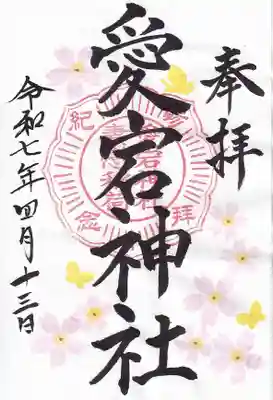 奉拝
愛宕神社
令和七年四月十三日
参拝
紀念